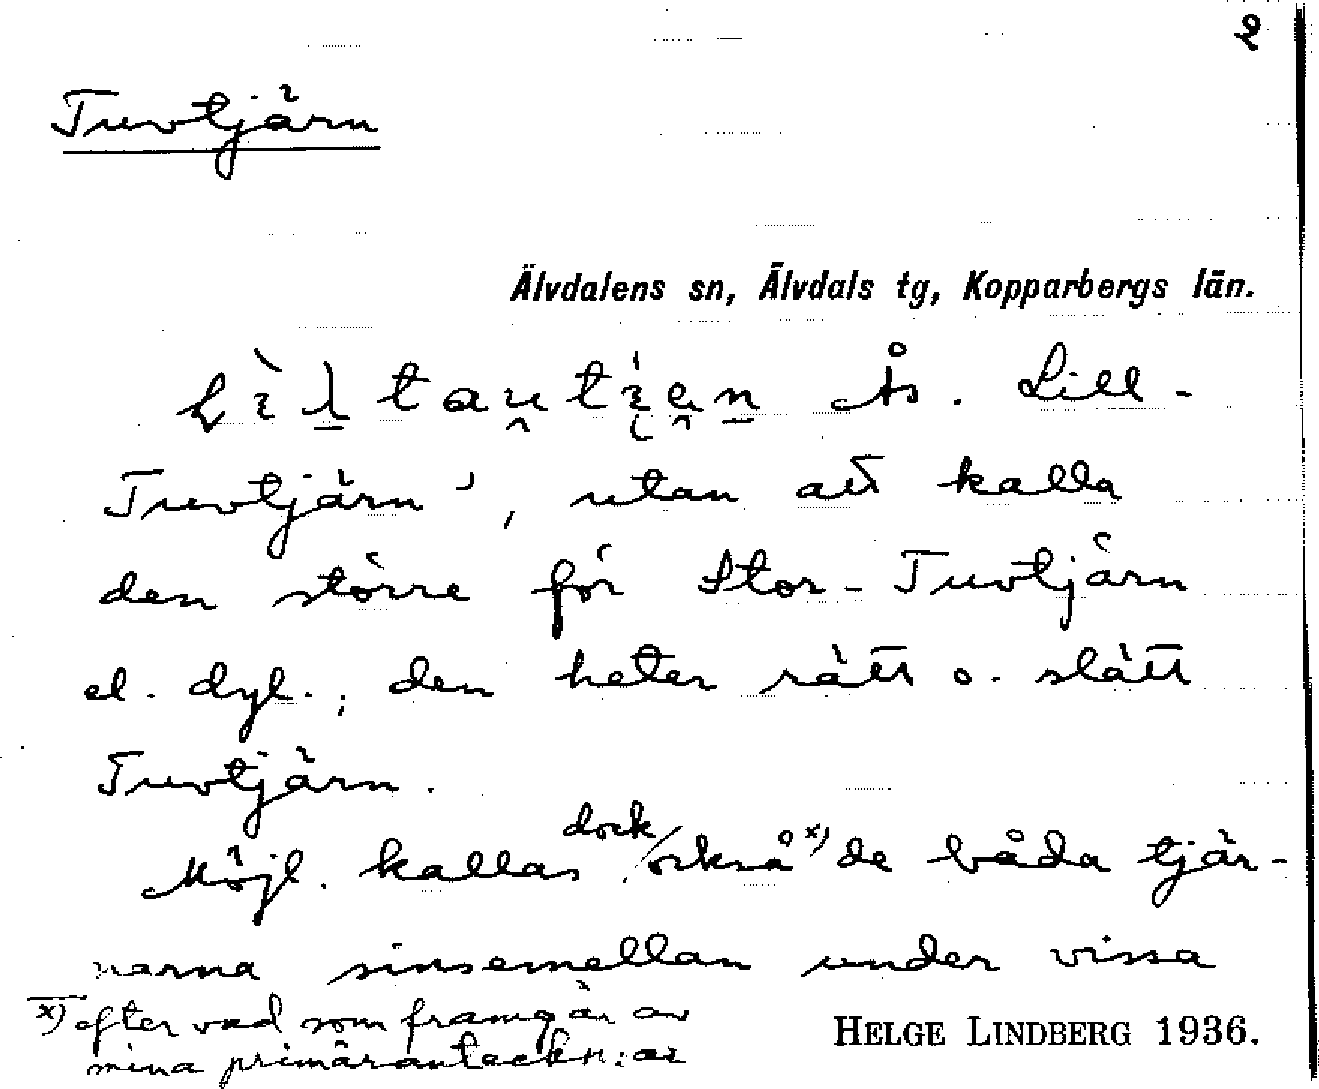 2
Tuvtjärn
Älvdalens sn, Älvdals tg, Kopparbergs län.
Ås. Lill-
Tuvtjärn', utan att kalla
den större för Stor-Tuvtjärn
el. dyl.; den heter rätt o. slätt
Tuvtjärn.
Möjl. kallas dock/också x) de båda tjär-
narna sinsemellan under vissa
x) efter vad som framgår av
mina primäranteckn:ar
HELGE LINDBERG 1936.